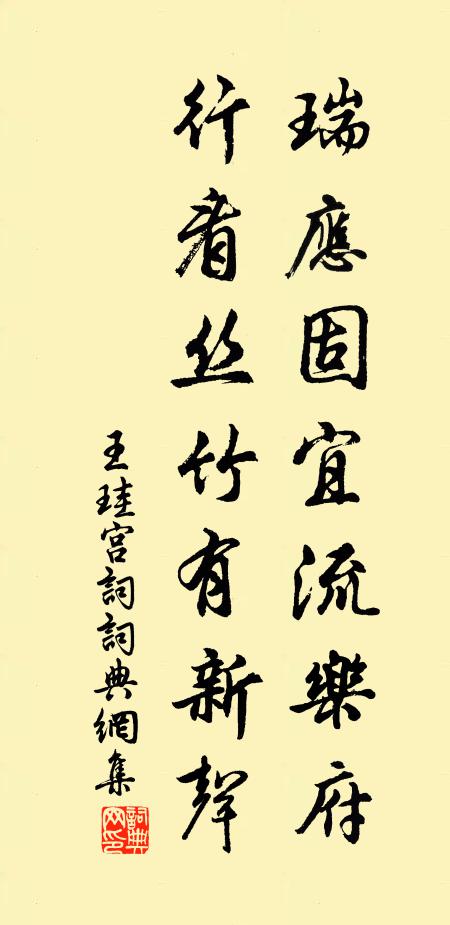 瑞應固宜流樂府
行看丝竹有新聲
王珪宫詞詞典網集
詞典网印